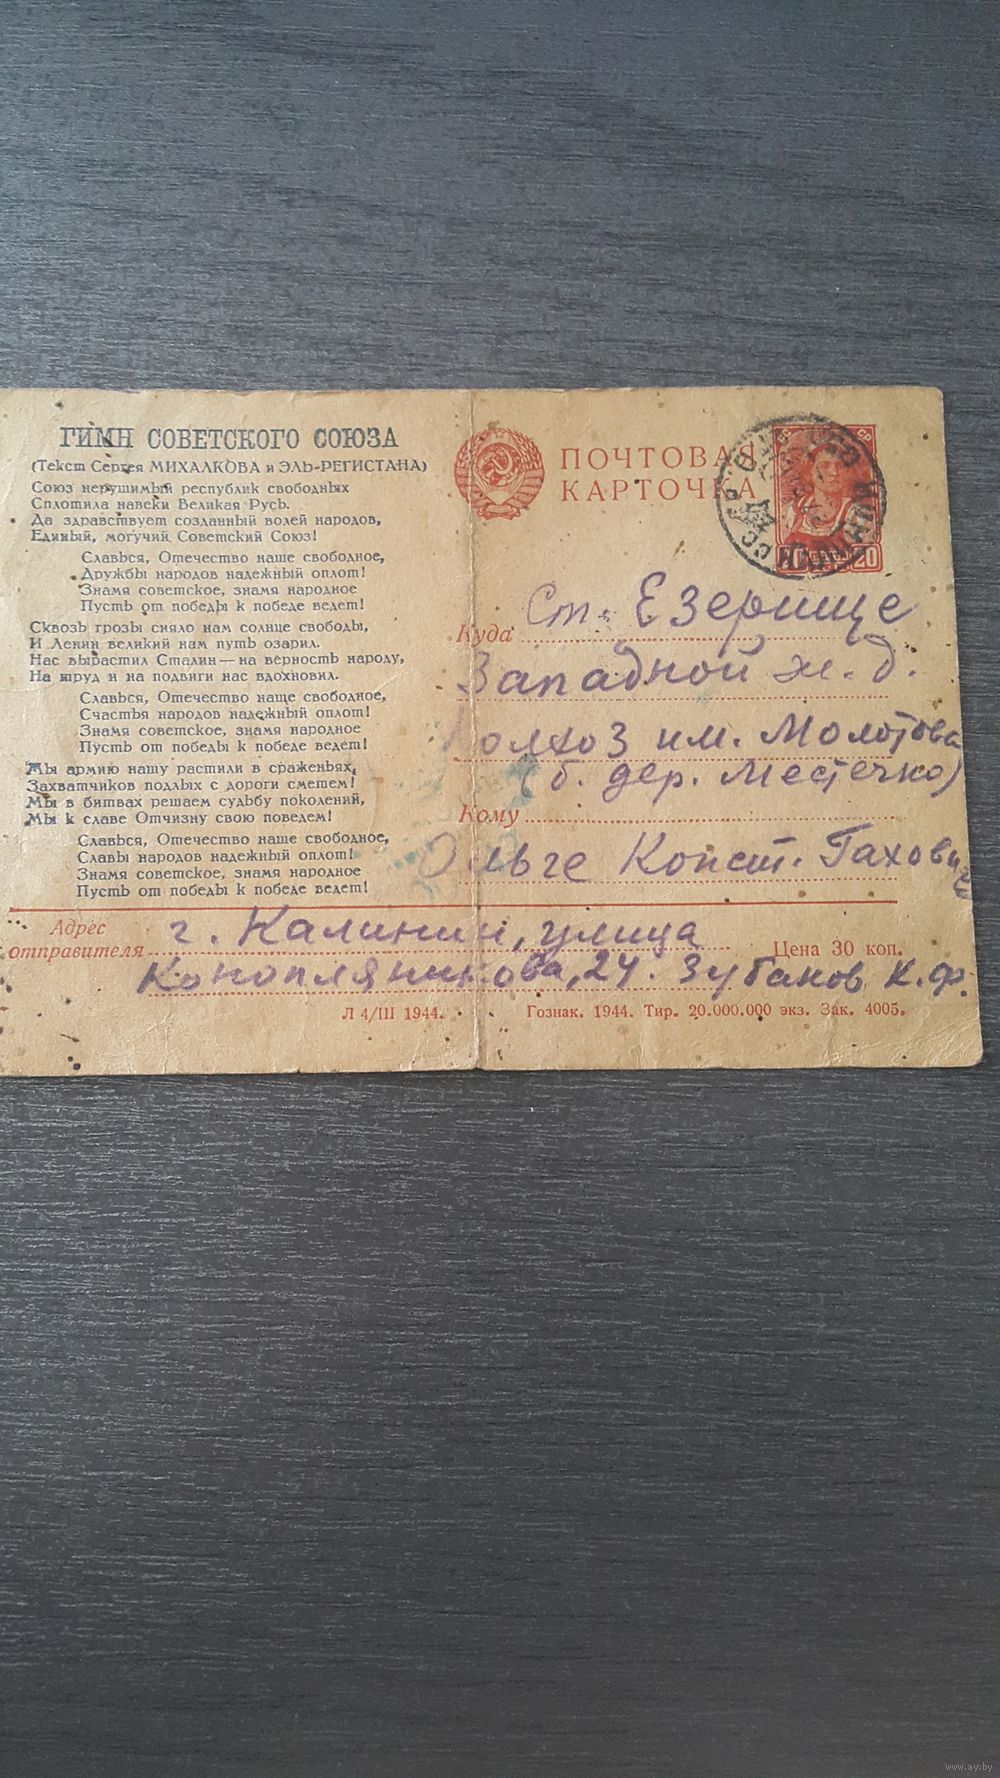 ГИМН СОВЕТСКОГО СОЮЗА
(Текст Сергея МИХАЛКОВА и ЭЛЬ-РЕГИСТАНА)
Союз нерушимый республик свободных
Сплотила навеки Великая Русь.
Да здравствует созданный волей народов,
Единый, могучий Советский Союз!
Славься, Отечество наше свободное,
Дружбы народов надежный оплот!
Знамя советское, знамя народное
Пусть от победы к победе ведет!
Сквозь грозы сияло нам солнце свободы,
И Ленин великий нам путь озарил.
Нас вырастил Сталин — на верность народу,
На труд и на подвиги нас вдохновил.
Славься, Отечество наше свободное,
Счастья народов надежный оплот!
Знамя советское, знамя народное
Пусть от победы к победе ведет!
Мы армию нашу растили в сраженьях,
Захватчиков подлых с дороги сметем!
Мы в битвах решаем судьбу поколений,
Мы к славе Отчизну свою поведем!
Славься, Отечество наше свободное,
Славы народов надежный оплот!
Знамя советское, знамя народное
Пусть от победы к победе ведет!
ПОЧТОВАЯ
КАРТОЧКА
20
Куда ст. Езерище
Западной ж. д.
Колхоз им. Молотова
(б. дер. Местечко)
Кому
Ольге Конст. Гахович
Адрес
отправителя
г. Калинин, улица
Коноплянникова, 24. Зубаков К. Ф.
Цена 30 коп.
Л 4/III 1944.
Гознак. 1944. Тир. 20.000.000 экз. Зак. 4005.
www.ay.by